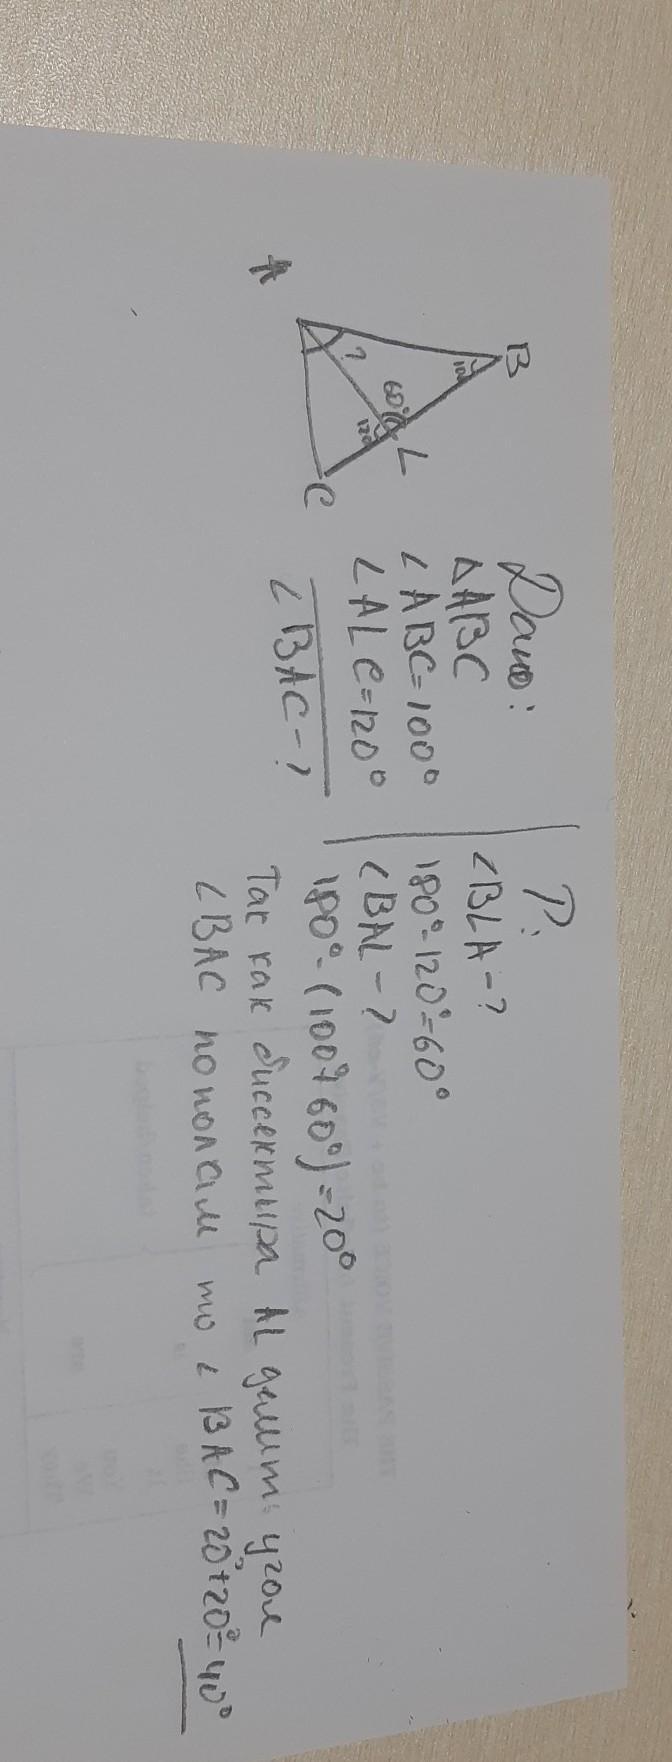 B
100
60°
L
120
?
A
C
Дано:
△ABC
∠ABC=100°
∠ALC=120°
∠BAC-?
Р:
∠BLA-?
180°-120°=60°
∠BAL-?
180°-(100°+60°)=20°
Так как биссектыра AL делит угол
∠BAC пополам то ∠BAC=20°+20°=40°